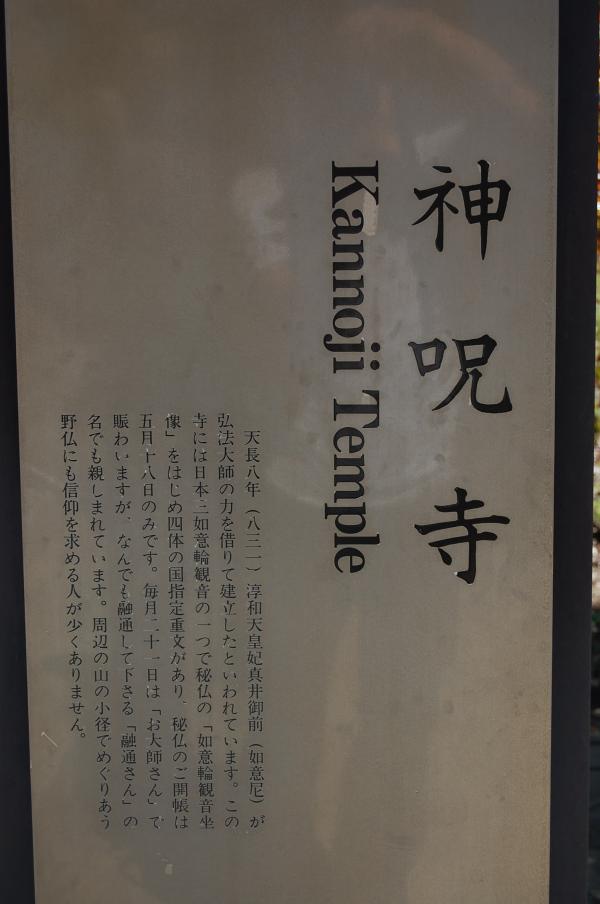 神呪寺
Kannoji Temple
天長八年（八三一）淳和天皇妃真井御前（如意尼）が
弘法大師の力を借りて建立したといわれています。この
寺には日本三如意輪観音の一つで秘仏の「如意輪観音坐
像」をはじめ四体の国指定重文があり、秘仏のご開帳は
五月十八日のみです。毎月二十一日は「お大師さん」で
賑わいますが、なんでも融通して下さる「融通さん」の
名でも親しまれています。周辺の山の小径でめぐりあう
野仏にも信仰を求める人が少くありません。